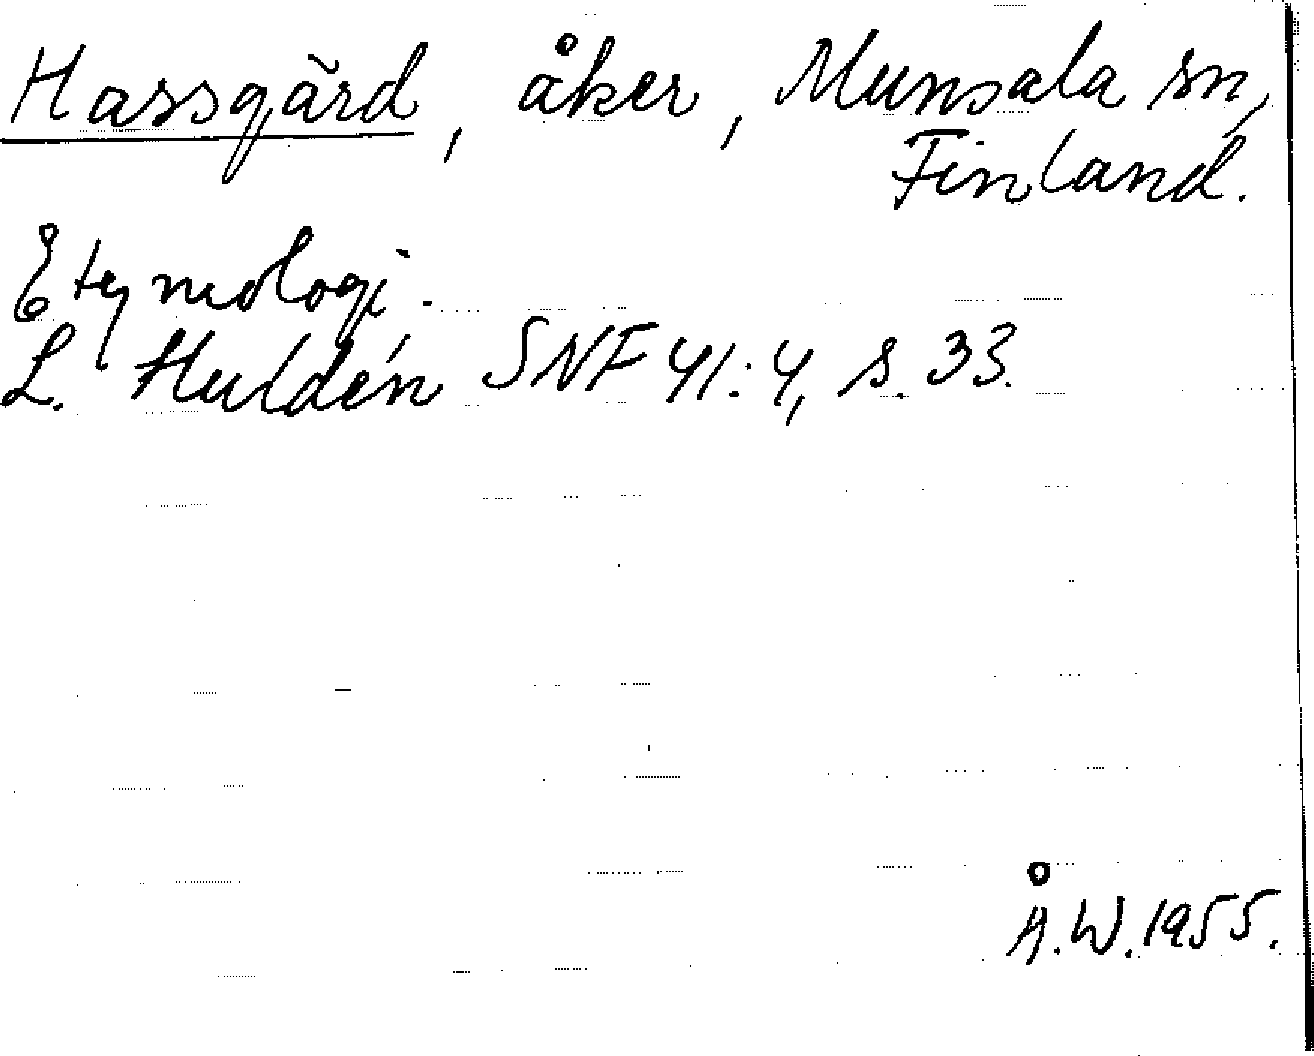 Hassgård, åker, Munsala sn,
Finland.
Etymologi.
L. Huldén SNF 41:4, s. 33.
Å.W. 1955.